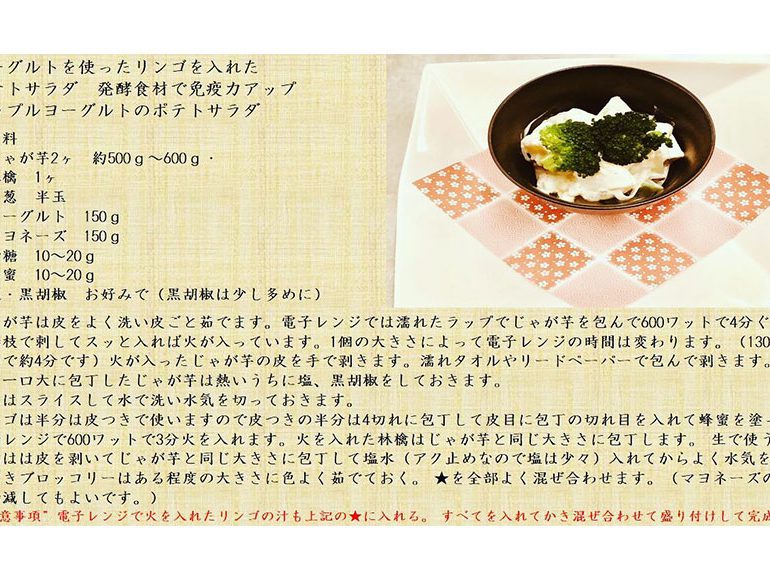 ーグルトを使ったリンゴを入れた
テトサラダ　発酵食材で免疫力アップ
プルヨーグルトのポテトサラダ
料
ゃが芋2ヶ　約500ｇ～600ｇ・
檎　1ヶ
葱　半玉
ーグルト　150ｇ
ヨネーズ　150ｇ
糖　10～20ｇ
蜜　10～20ｇ
・黒胡椒　お好みで（黒胡椒は少し多めに）
が芋は皮をよく洗い皮ごと茹でます。電子レンジでは濡れたラップでじゃが芋を包んで600ワットで4分ぐ
枝で刺してスッと入れば火が入っています。1個の大きさによって電子レンジの時間は変わります。（130
で約4分です）火が入ったじゃが芋の皮を手で剥きます。濡れタオルやリードペーパーで包んで剥きます。
一口大に包丁したじゃが芋は熱いうちに塩、黒胡椒をしておきます。
はスライスして水で洗い水気を切っておきます。
ゴは半分は皮つきで使いますので皮つきの半分は4切れに包丁して皮目に包丁の切れ目を入れて蜂蜜を塗
レンジで600ワットで3分火を入れます。火を入れた林檎はじゃが芋と同じ大きさに包丁します。 生で使う
はは皮を剥いてじゃが芋と同じ大きさに包丁して塩水（アク止めなので塩は少々）入れてからよく水気を
きブロッコリーはある程度の大きさに色よく茹でておく。 ★を全部よく混ぜ合わせます。（マヨネーズの
減してもよいです。）
意事項"電子レンジで火を入れたリンゴの汁も上記の★に入れる。 すべてを入れてかき混ぜ合わせて盛り付けして完成